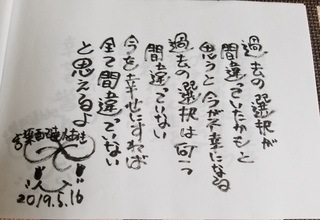 過去の選択が
間違っていたかもと
思うと今が不幸になる
過去の選択は何一つ
間違っていない
今を幸せにすれば
全て間違っていない
と思えるよ
2019.5.16